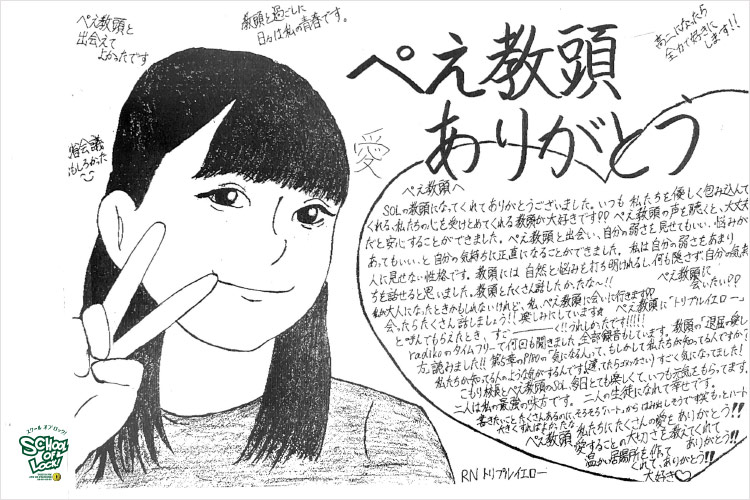 ぺえ教頭と
出会えて
よかったです
教頭と過ごした
日々は私の青春です。
高二になったら
全力で好きに
します!!
ぺえ教頭
ありがとう
愛
会議
おもしろかった
ぺえ教頭へ
SOLの教頭になってくれてありがとうございました。いつも私たちを優しく包み込んで
くれる、私たちの心を受けとめてくれる教頭が大好きです♡♡ ぺえ教頭の声を聴くと、大丈夫
だと安心することができました。ぺえ教頭と出会い、自分の弱さを見せてもいい、悩みが
あってもいい、と自分の気持ちに正直になることができました。私は自分の弱さをあまり
人に見せない性格です。教頭には自然と悩みを打ち明けれるし、何も隠さず自分の気持
ちを話せると思いました。教頭とたくさん話したかったな〜!!
ぺえ教頭に
会いたい??
私が大人になったときかもしれないけれど、私、ぺえ教頭に会いに行きます♡♡
会ったらたくさん話しましょう!! 楽しみにしています☆ ぺえ教頭に「トリプルイエロー」
と呼んでもらえたとき、すご────く!!うれしかったです!!!!!
radikoのタイムフリーで何回も聞きました。全部録音もしています。教頭の「退屈の愛し
方」読みました!! 第5章のP190の「気になる人」って、もしかして私たちが知ってる人ですか?
私たちが知ってる人のような気がするんです(違ってたらごめんなさい) すごく気になってました!
こもり校長とぺえ教頭のSOL、毎日とても楽しくて、いつも元気をもらってます。
二人は私の最強の味方です。二人の生徒になれて幸せです。
書きたいことたくさんあるのに、そろそろハートからはみ出しそうです笑もっとハート
大きくすればよかったな
ぺえ教頭、私たちにたくさんの愛をありがとう!!
愛することの大切さを教えてくれて
ありがとう!!
温かい居場所を作って
くれて、ありがとう!!
大好き♡
RN トリプルイエロー
スクール オブ ロック!
SCHOOL
OF
LOCK!